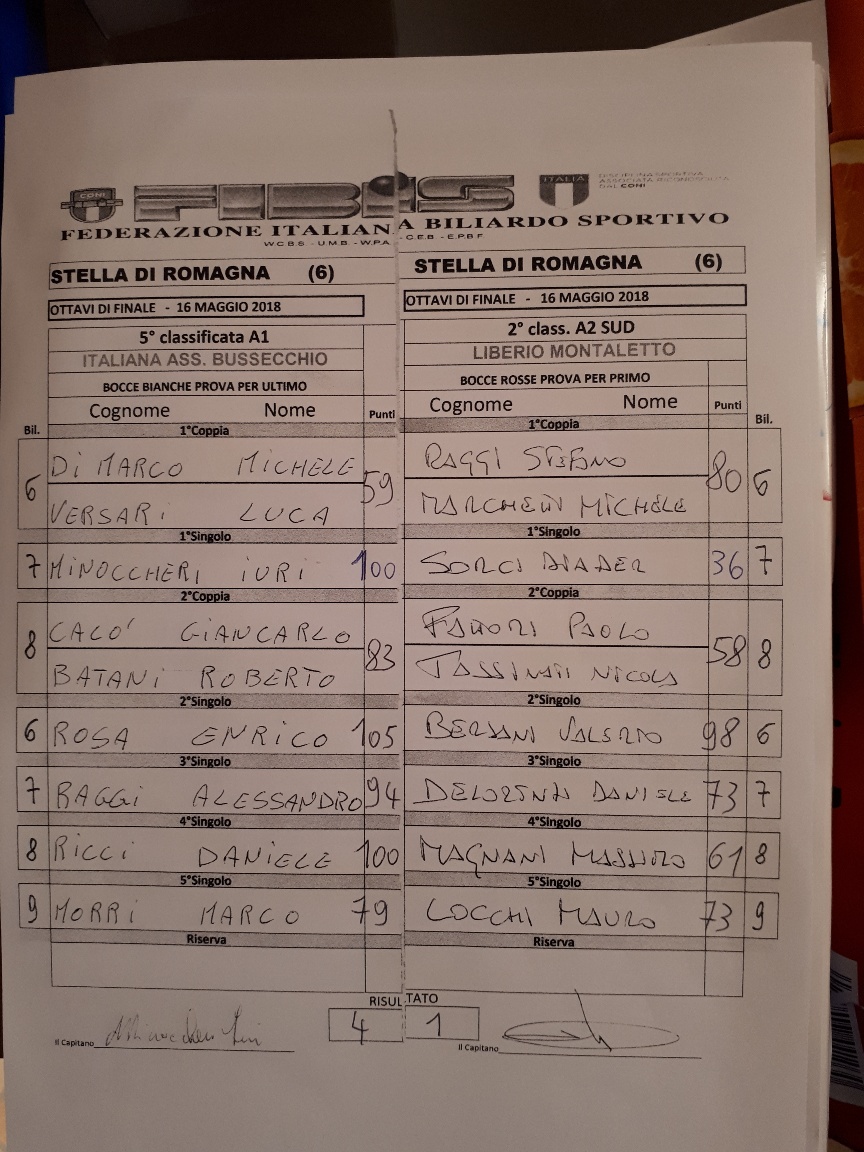 CONI
FIBiS
ITALIA
DISCIPLINA SPORTIVA
ASSOCIATA RICONOSCIUTA
DAL CONI
FEDERAZIONE ITALIANA BILIARDO SPORTIVO
W.C.B.S. - U.M.B. - W.P.A. - C.E.B. - E.P.B.F
STELLA DI ROMAGNA (6) STELLA DI ROMAGNA (6)
OTTAVI DI FINALE - 16 MAGGIO 2018 OTTAVI DI FINALE - 16 MAGGIO 2018
5° classificata A1 2° class. A2 SUD
ITALIANA ASS. BUSSECCHIO LIBERIO MONTALETTO
BOCCE BIANCHE PROVA PER ULTIMO BOCCE ROSSE PROVA PER PRIMO
Cognome Nome Punti Cognome Nome Punti
Bil. 1°Coppia 1°Coppia Bil.
6 DI MARCO MICHELE 59 RAGGI STEFANO 80 6
VERSARI LUCA MICHELE
1°Singolo 1°Singolo
7 MINOCCHERI IURI 100 SORCI 36 7
2°Coppia 2°Coppia
8 CALO' GIANCARLO 83 PAOLO 58 8
BATANI ROBERTO TASSINARI NICOLA
2°Singolo 2°Singolo
6 ROSA ENRICO 105 BERSANI VALERIO 98 6
3°Singolo 3°Singolo
7 RAGGI ALESSANDRO 94 DANIELE 73 7
4°Singolo 4°Singolo
8 RICCI DANIELE 100 MAGNANI MASSIMO 61 8
5°Singolo 5°Singolo
9 MORRI MARCO 79 LOCCHI MAURO 73 9
Riserva Riserva
RISULTATO
4 1
Il Capitano Il Capitano